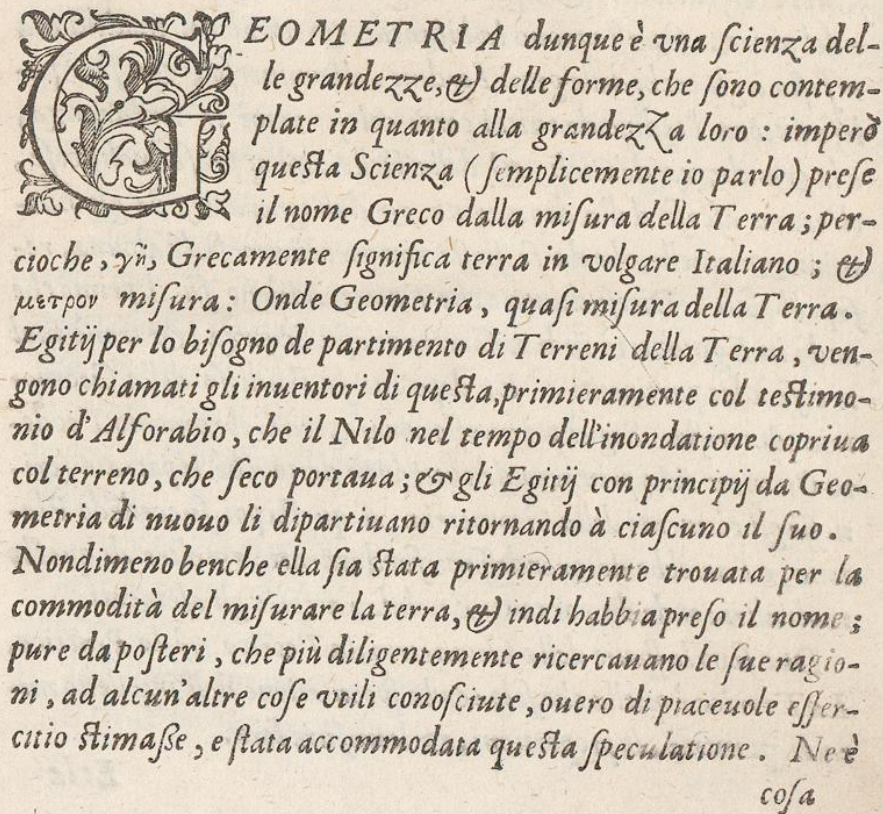 GEOMETRIA dunque è vna ſcienza del-
le grandezze, & delle forme, che ſono contem-
plate in quanto alla grandezza loro : imperò
queſta Scienza (ſemplicemente io parlo) preſe
il nome Greco dalla miſura della Terra; per-
cioche, γῆ, Grecamente ſignifica terra in volgare Italiano ; &
μετρον miſura: Onde Geometria, quaſi miſura della Terra.
Egitij per lo biſogno de partimento di Terreni della Terra, ven-
gono chiamati gli inuentori di queſta, primieramente col teſtimo-
nio d'Alforabio, che il Nilo nel tempo dell'inondatione copriua
col terreno, che ſeco portaua; & gli Egitij con principij da Geo-
metria di nuouo li dipartiuano ritornando à ciaſcuno il ſuo.
Nondimeno benche ella ſia ſtata primieramente trouata per la
commodità del miſurare la terra, & indi habbia preſo il nome;
pure da poſteri, che più diligentemente ricercauano le ſue ragio-
ni, ad alcun'altre coſe vtili conoſciute, ouero di piaceuole eſſer-
citio ſtimaſſe, e ſtata accommodata queſta ſpeculatione. Ne è
coſa